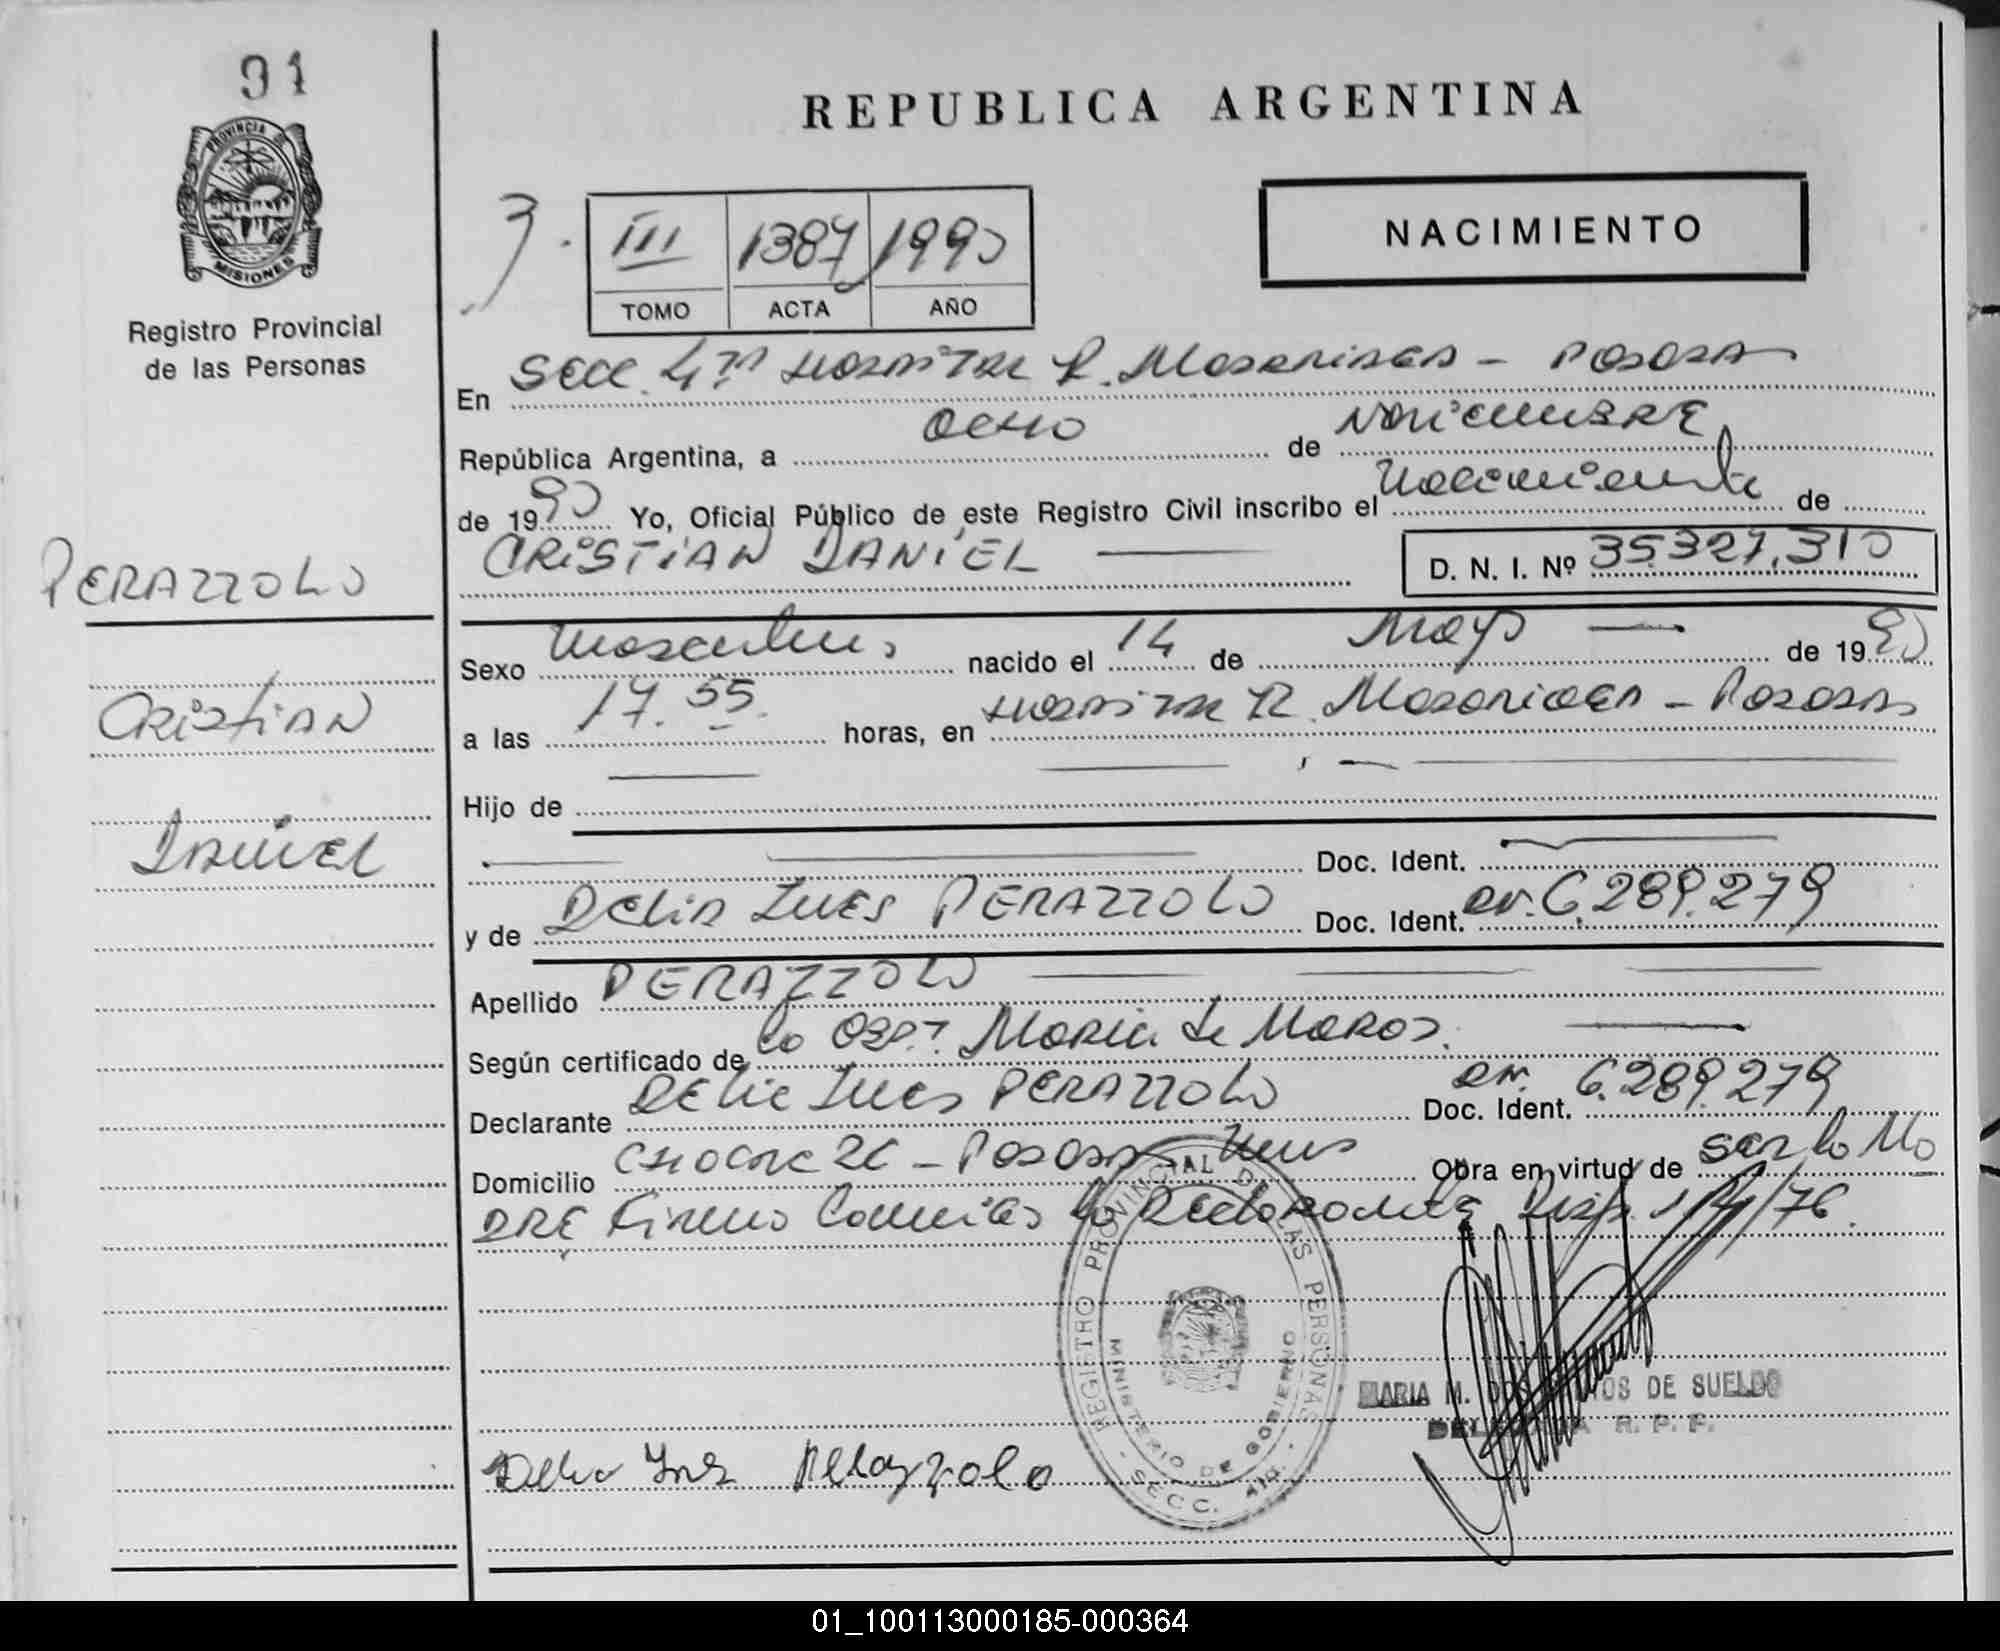 91
REPUBLICA ARGENTINA
PROVINCIA DE MISIONES
Registro Provincial
de las Personas
3.
III 1387 1990
TOMO ACTA AÑO
NACIMIENTO
En Secc. 4ta Hospital R. Madariaga - Posadas
República Argentina, a Ocho de Noviembre
de 1990 Yo, Oficial Público de este Registro Civil inscribo el Nacimiento de
CRISTIAN DANIEL D. N. I. Nº 35.327.310
PERAZZOLO
Cristian
Daniel
Sexo Masculino nacido el 14 de Mayo de 1990
a las 17.55 horas, en Hospital R. Madariaga - Posadas
Hijo de
Doc. Ident.
y de Delia Ines PERAZZOLO Doc. Ident. 6.289.279
Apellido PERAZZOLO
Según certificado de la Obst. Maria de
Declarante Delia Ines PERAZZOLO Doc. Ident. 6.289.279
Domicilio 26 - Posadas Mnes Obra en virtud de ser la Ma
dre Firmo la declarante Disp. /76.
REGISTRO PROVINCIAL DE LAS PERSONAS
MINISTERIO DE GOBIERNO
- SECC. 4ta. -
MARIA M. DOS DE SUELDO
DELEGADA R. P. P.
Delia Ines Perazzolo
01_100113000185-000364